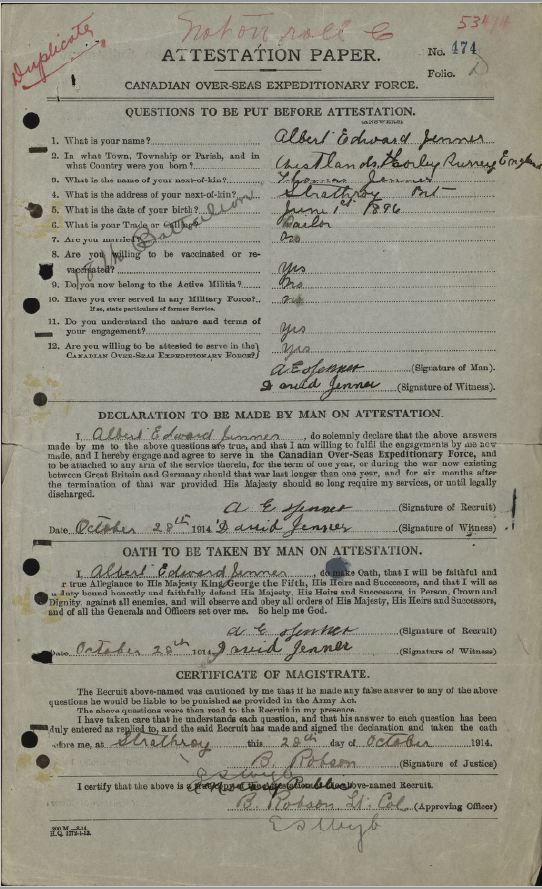 Not on roll C
53474
Duplicate
ATTESTATION PAPER.
No. 474
Folio.
CANADIAN OVER-SEAS EXPEDITIONARY FORCE.
QUESTIONS TO BE PUT BEFORE ATTESTATION.
(ANSWERS)
1. What is your name? Albert Edward Jenner
2. In what Town, Township or Parish, and in
what Country were you born? Westlands, Horley Surrey England
3. What is the name of your next-of-kin? Thomas Jenner
4. What is the address of your next-of-kin? Strathroy Ont
5. What is the date of your birth? June 1st 1896
6. What is your Trade or Calling? Tailor
7. Are you married? no
18th Battalion
8. Are you willing to be vaccinated or re-
vaccinated? Yes
9. Do you now belong to the Active Militia? No
10. Have you ever served in any Military Force? no
If so, state particulars of former Service.
11. Do you understand the nature and terms of
your engagement? Yes
12. Are you willing to be attested to serve in the
CANADIAN OVER-SEAS EXPEDITIONARY FORCE? Yes
A E Jenner (Signature of Man).
David Jenner (Signature of Witness).
DECLARATION TO BE MADE BY MAN ON ATTESTATION.
I, Albert Edward Jenner, do solemnly declare that the above answers
made by me to the above questions are true, and that I am willing to fulfil the engagements by me now
made, and I hereby engage and agree to serve in the Canadian Over-Seas Expeditionary Force, and
to be attached to any arm of the service therein, for the term of one year, or during the war now existing
between Great Britain and Germany should that war last longer than one year, and for six months after
the termination of that war provided His Majesty should so long require my services, or until legally
discharged.
A E Jenner (Signature of Recruit)
Date October 28th 1914 David Jenner (Signature of Witness)
OATH TO BE TAKEN BY MAN ON ATTESTATION.
I, Albert Edward Jenner, do make Oath, that I will be faithful and
r true Allegiance to His Majesty King George the Fifth, His Heirs and Successors, and that I will as
duty bound honestly and faithfully defend His Majesty, His Heirs and Successors, in Person, Crown and
Dignity, against all enemies, and will observe and obey all orders of His Majesty, His Heirs and Successors,
and of all the Generals and Officers set over me. So help me God.
A E Jenner (Signature of Recruit)
Date October 28th 1914 David Jenner (Signature of Witness)
CERTIFICATE OF MAGISTRATE.
The Recruit above-named was cautioned by me that if he made any false answer to any of the above
questions he would be liable to be punished as provided in the Army Act.
The above questions were then read to the Recruit in my presence.
I have taken care that he understands each question, and that his answer to each question has been
duly entered as replied to, and the said Recruit has made and signed the declaration and taken the oath
before me, at Strathroy this 28th day of October 1914.
B. Robson (Signature of Justice)
I certify that the above is a above-named Recruit.
B. Robson Lt. Col (Approving Officer)
200 M.—8-14.
H.Q. 1772-1-13.